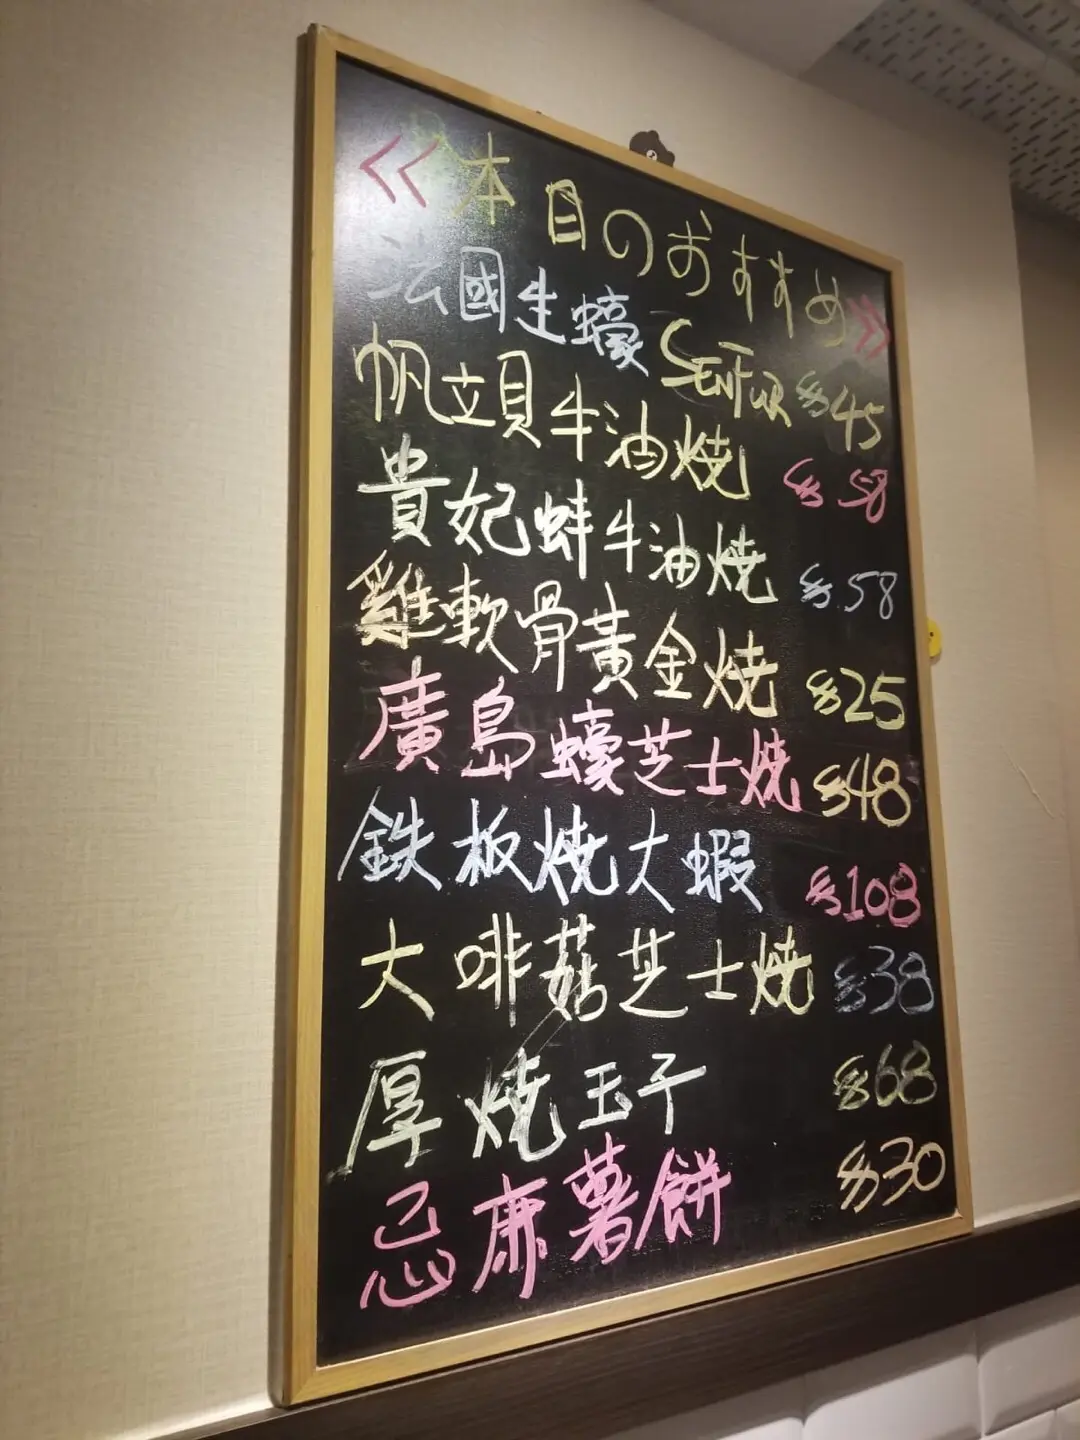 《本日のおすすめ》
法國生蠔 $45
帆立貝牛油焼 $58
貴妃蚌牛油焼 $58
雞軟骨黃金焼 $25
廣島蠔芝士焼 $48
鉄板焼大蝦 $108
大啡菇芝士焼 $38
厚焼玉子 $68
忌廉薯餅 $30